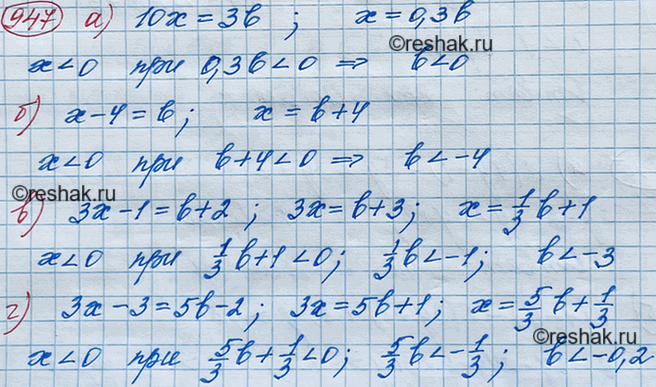 947 а) 10x = 3b ; x = 0,3b
©reshak.ru
x < 0 при 0,3b < 0 ⇒ b < 0
б) x - 4 = b ; x = b + 4
x < 0 при b + 4 < 0 ⇒ b < -4
©reshak.ru
в) 3x - 1 = b + 2 ; 3x = b + 3 ; x = 1/3 b + 1
x < 0 при 1/3 b + 1 < 0 ; 1/3 b < -1 ; b < -3
г) 3x - 3 = 5b - 2 ; 3x = 5b + 1 ; x = 5/3 b + 1/3
©reshak.ru
x < 0 при 5/3 b + 1/3 < 0 ; 5/3 b < -1/3 ; b < -0,2